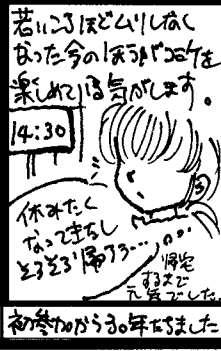 若いころほどムリしなく
なった今のほうがコミケを
楽しめてる気がします。
14:30
休みたく
なってきたし
そろそろ帰ろう…
帰宅
するまで
元気でした。
初参加から30年たちました